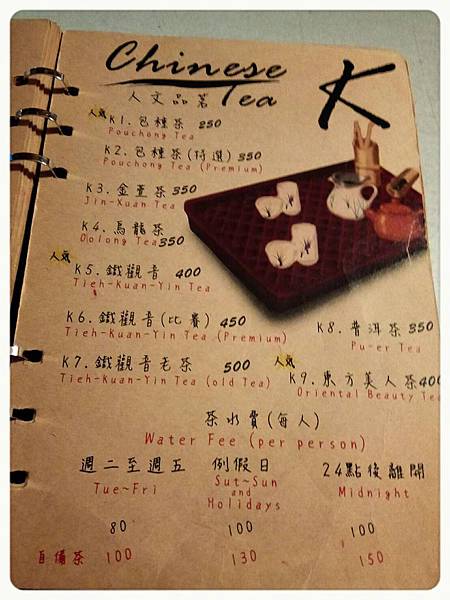 Chinese
Tea
K
人文品茗
人氣 K1. 包種茶 250
Pouchong Tea
K2. 包種茶(特選) 350
Pouchong Tea (Premium)
K3. 金萱茶 350
Jin-Xuan Tea
K4. 烏龍茶
Oolong Tea 350
人氣
K5. 鐵觀音 400
Tieh-Kuan-Yin Tea
K6. 鐵觀音(比賽) 450
Tieh-Kuan-Yin Tea (Premium)
K7. 鐵觀音老茶 500
Tieh-Kuan-Yin Tea (old Tea)
K8. 普洱茶 350
Pu-er Tea
人氣
K9. 東方美人茶 400
Oriental Beauty Tea
茶水費(每人)
Water Fee (per person)
週二至週五 例假日 24點後離開
Tue~Fri Sut~Sun and Holidays Midnight
80 100 100
自備茶 100 130 150